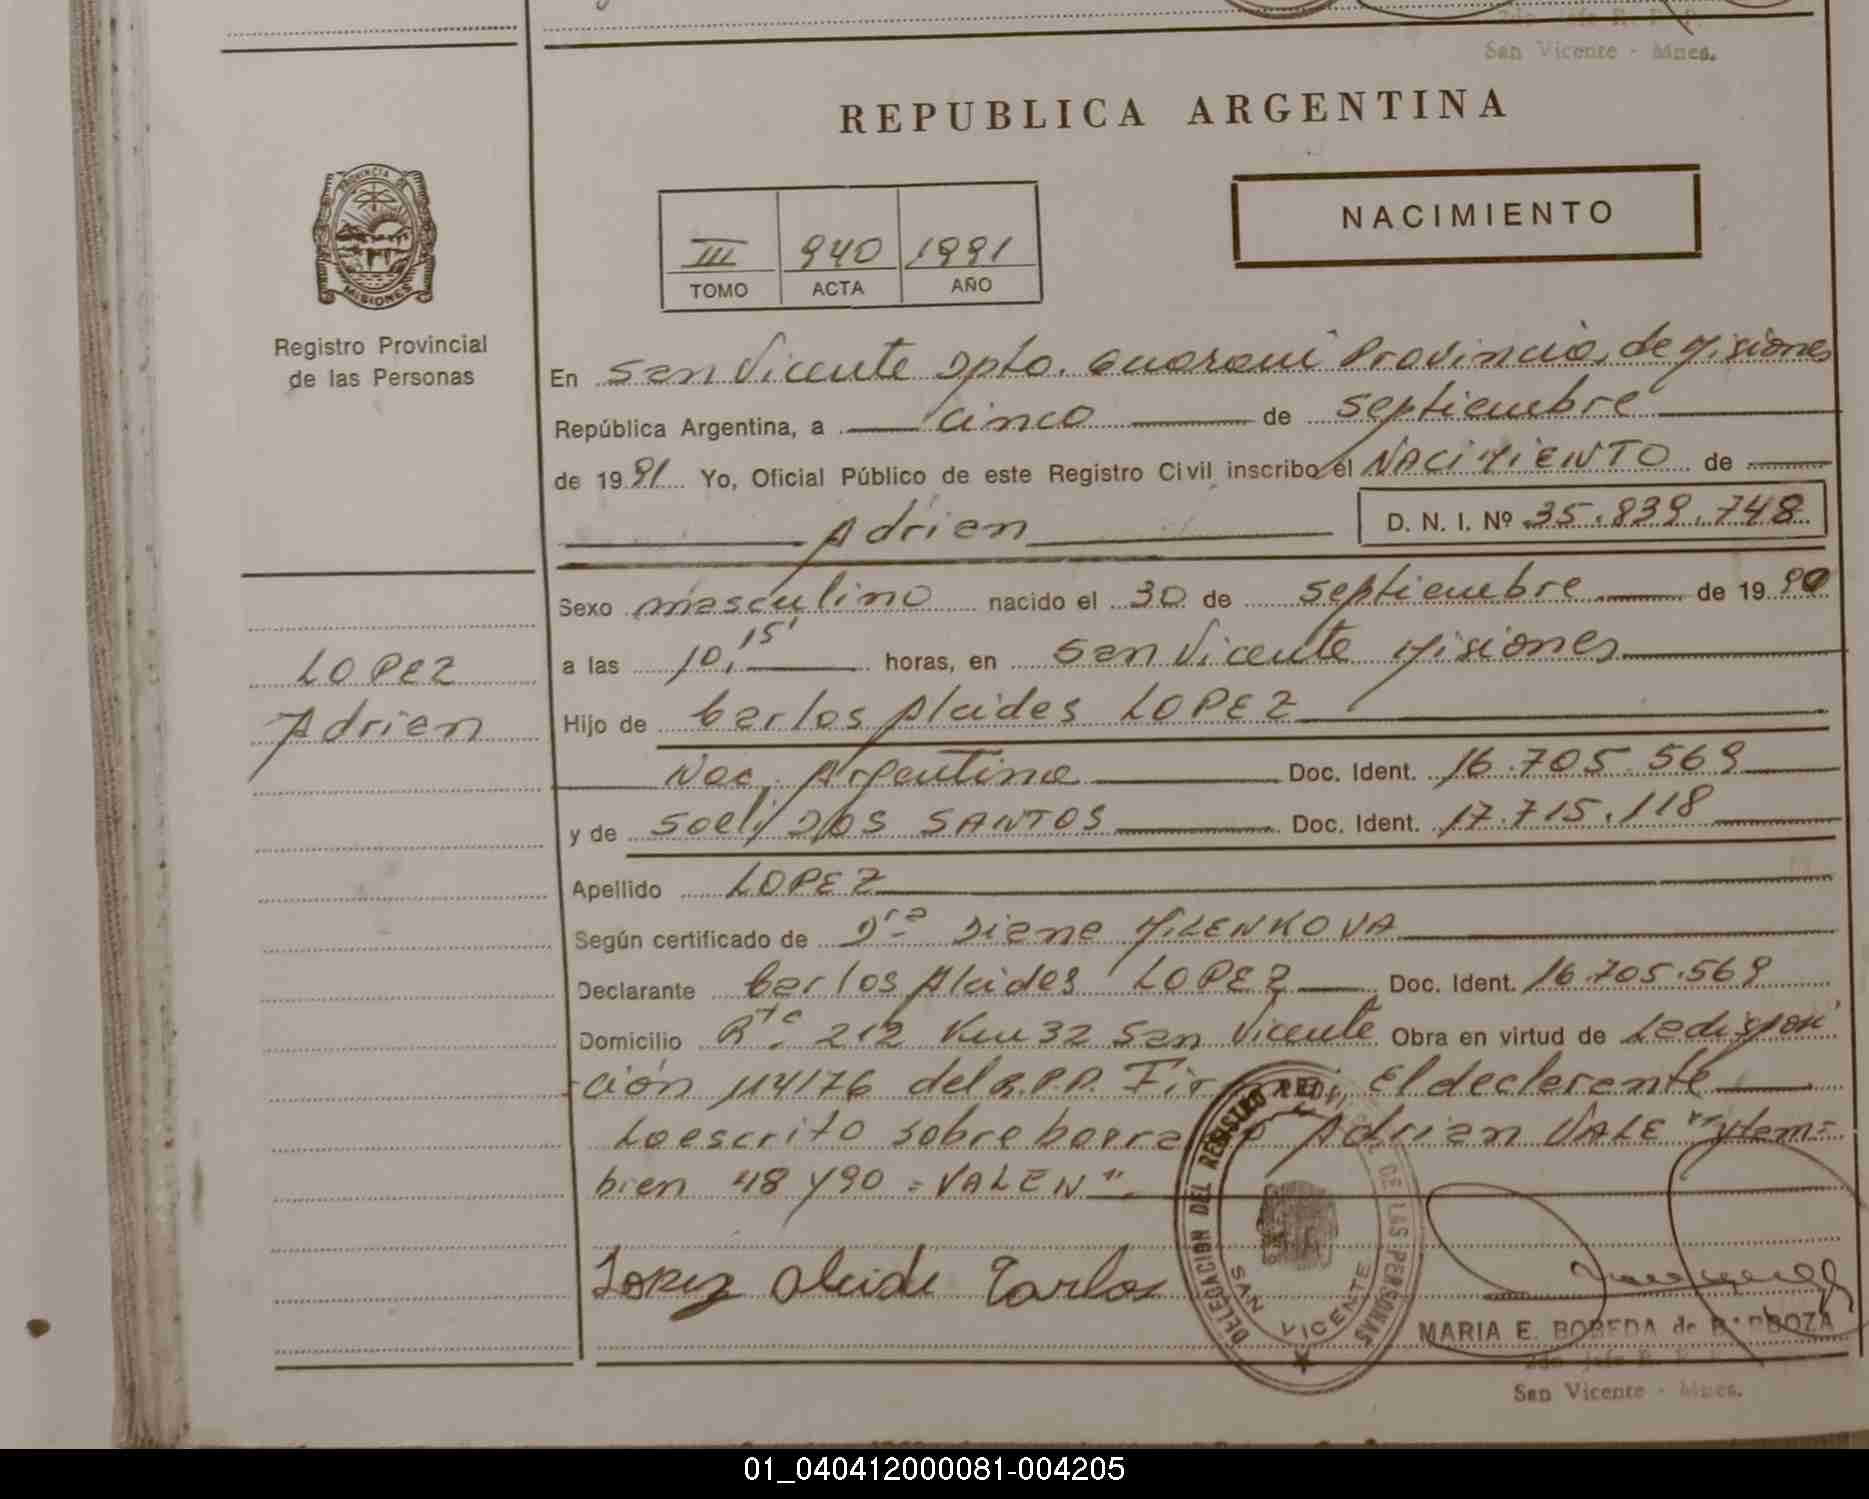 San Vicente - Mnes.
REPUBLICA ARGENTINA
NACIMIENTO
III 940 1991
TOMO ACTA AÑO
PROVINCIA DE MISIONES
Registro Provincial
de las Personas
En San Vicente Dpto. Guarani Provincia de Misiones
República Argentina, a cinco de septiembre
de 1991 Yo, Oficial Público de este Registro Civil inscribo el NACIMIENTO de
Adrian D. N. I. Nº 35.839.748
Sexo masculino nacido el 30 de septiembre de 1990
a las 10,15' horas, en San Vicente Misiones
LOPEZ
Adrian
Hijo de Carlos Alcides LOPEZ
Nac. Argentina Doc. Ident. 16.705.569
y de Soeli DOS SANTOS Doc. Ident. 17.715.118
Apellido LOPEZ
Según certificado de Dra Diana MILENKOVA
Declarante Carlos Alcides LOPEZ Doc. Ident. 16.705.569
Domicilio Rta 212 Km 32 San Vicente Obra en virtud de La disposi
ción 114/76 del R.P.P. El declarante
Lo escrito sobre Adrian VALE "y tam=
bien 48 y 90 = VALEN".
Lopez Alcide Carlos
DELEGACION DEL REGISTRO DE LAS PERSONAS
SAN VICENTE
MARIA E. BOBEDA de BARBOZA
2do Jefe R.
San Vicente - Mnes.
01_040412000081-004205